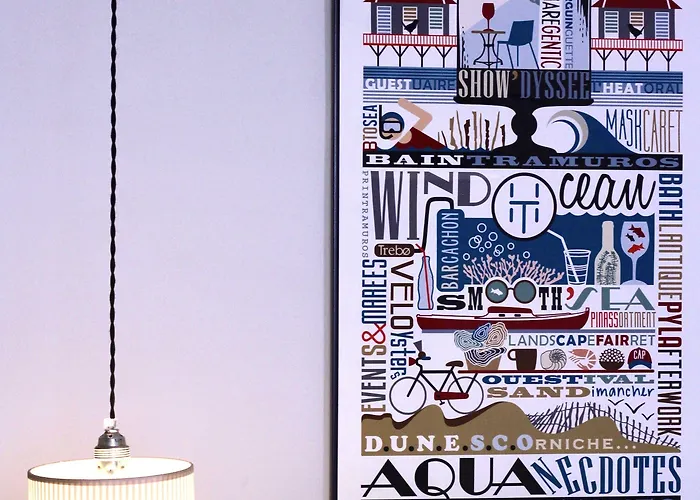 AREGENTIC
GUINGUETTE
GUESTUAIRE
SHOW'DYSSÉE
THEATORAL
BTOSEA
MASKCARET
BAINTRAMUROS
PRINTRAMUROS
WINDOcean
HT
BATHLANTIQUE
PYLAFTERWORK
BARCACHON
Trebø
EVENTS&MAREES
VELOysters
SMOOTH'SEA
PINASSORTMENT
LANDSCAPEFAIRRET
CAP
OUESTIVAL
SANDimancher
D.U.N.E.S.C.ORNICHE...
AQUANECDOTES